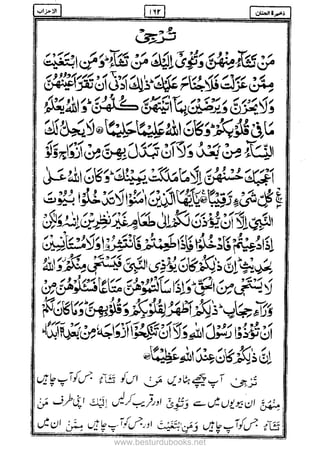 ذخیرة الجنان ١٦٣ الاحزاب
تُرْجِیْ
مَنْ تَشَآءُ مِنْهُنَّ وَتُـْٔوِیْۤ اِلَیْكَ مَنْ تَشَآءُ ؕ وَمَنِ ابْتَغَیْتَ
مِمَّنْ عَزَلْتَ فَلَا جُنَاحَ عَلَیْكَ ؕ ذٰلِكَ اَدْنٰۤی اَنْ تَقَرَّ اَعْیُنُهُنَّ
وَلَا یَحْزَنَّ وَیَرْضَیْنَ بِمَاۤ اٰتَیْتَهُنَّ كُلُّهُنَّ ؕ وَاللّٰهُ یَعْلَمُ
مَا فِیْ قُلُوْبِكُمْ ؕ وَكَانَ اللّٰهُ عَلِیْمًا حَلِیْمًا ۝ لَا یَحِلُّ لَكَ
النِّسَآءُ مِنْۢ بَعْدُ وَلَاۤ اَنْ تَبَدَّلَ بِهِنَّ مِنْ اَزْوَاجٍ وَّلَوْ
اَعْجَبَكَ حُسْنُهُنَّ اِلَّا مَا مَلَكَتْ یَمِیْنُكَ ؕ وَكَانَ اللّٰهُ عَلٰی
كُلِّ شَیْءٍ رَّقِیْبًا ۝ یٰۤاَیُّهَا الَّذِیْنَ اٰمَنُوْا لَا تَدْخُلُوْا بُیُوْتَ
النَّبِیِّ اِلَّاۤ اَنْ یُّؤْذَنَ لَكُمْ اِلٰی طَعَامٍ غَیْرَ نٰظِرِیْنَ اِنٰىهُ وَلٰكِنْ
اِذَا دُعِیْتُمْ فَادْخُلُوْا فَاِذَا طَعِمْتُمْ فَانْتَشِرُوْا وَلَا مُسْتَاْنِسِیْنَ
لِحَدِیْثٍ ؕ اِنَّ ذٰلِكُمْ كَانَ یُؤْذِی النَّبِیَّ فَیَسْتَحْیٖ مِنْكُمْ وَاللّٰهُ
لَا یَسْتَحْیٖ مِنَ الْحَقِّ ؕ وَاِذَا سَاَلْتُمُوْهُنَّ مَتَاعًا فَسْـَٔلُوْهُنَّ مِنْ
وَّرَآءِ حِجَابٍ ؕ ذٰلِكُمْ اَطْهَرُ لِقُلُوْبِكُمْ وَقُلُوْبِهِنَّ ؕ وَمَا كَانَ لَكُمْ
اَنْ تُؤْذُوْا رَسُوْلَ اللّٰهِ وَلَاۤ اَنْ تَنْكِحُوْۤا اَزْوَاجَهٗ مِنْۢ بَعْدِهٖۤ اَبَدًا ؕ
اِنَّ ذٰلِكُمْ كَانَ عِنْدَ اللّٰهِ عَظِیْمًا ۝
تُرْجِیْ آپ پیچھے ہٹا دیں مَنْ جس کو تَشَآءُ آپ چاہیں
مِنْهُنَّ ان بیویوں میں سے وَتُـْٔوِیْ اور قریب کر لیں اِلَیْكَ اپنی طرف مَنْ
تَشَآءُ جس کو آپ چاہیں وَمَنِ ابْتَغَیْتَ اور جس کو آپ چاہیں مِمَّنْ ان میں
www.besturdubooks.net